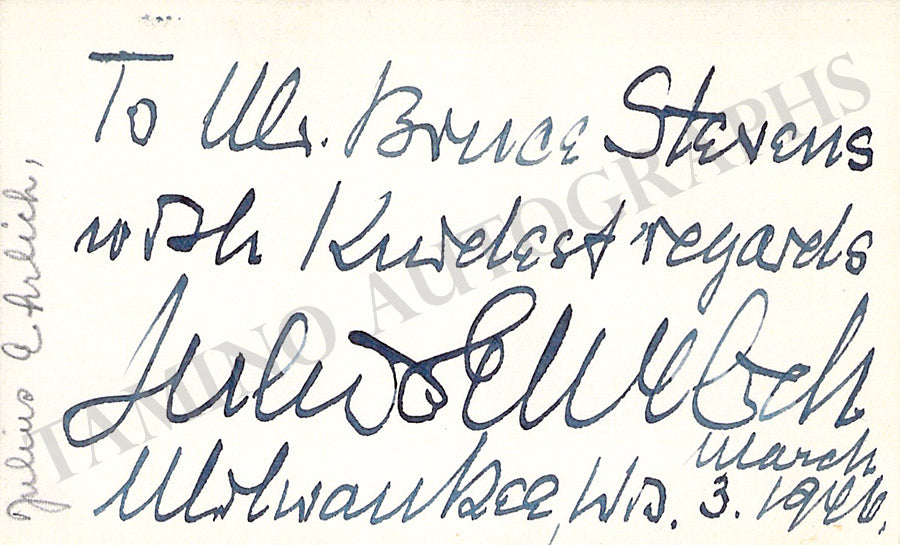 To Mr. Bruce Stevens
with Kindest regards
Julius Ehrlich
March
Milwaukee, Wis. 3. 1946.
Julius Ehrlich,
TAMINO AUTOGRAPHS